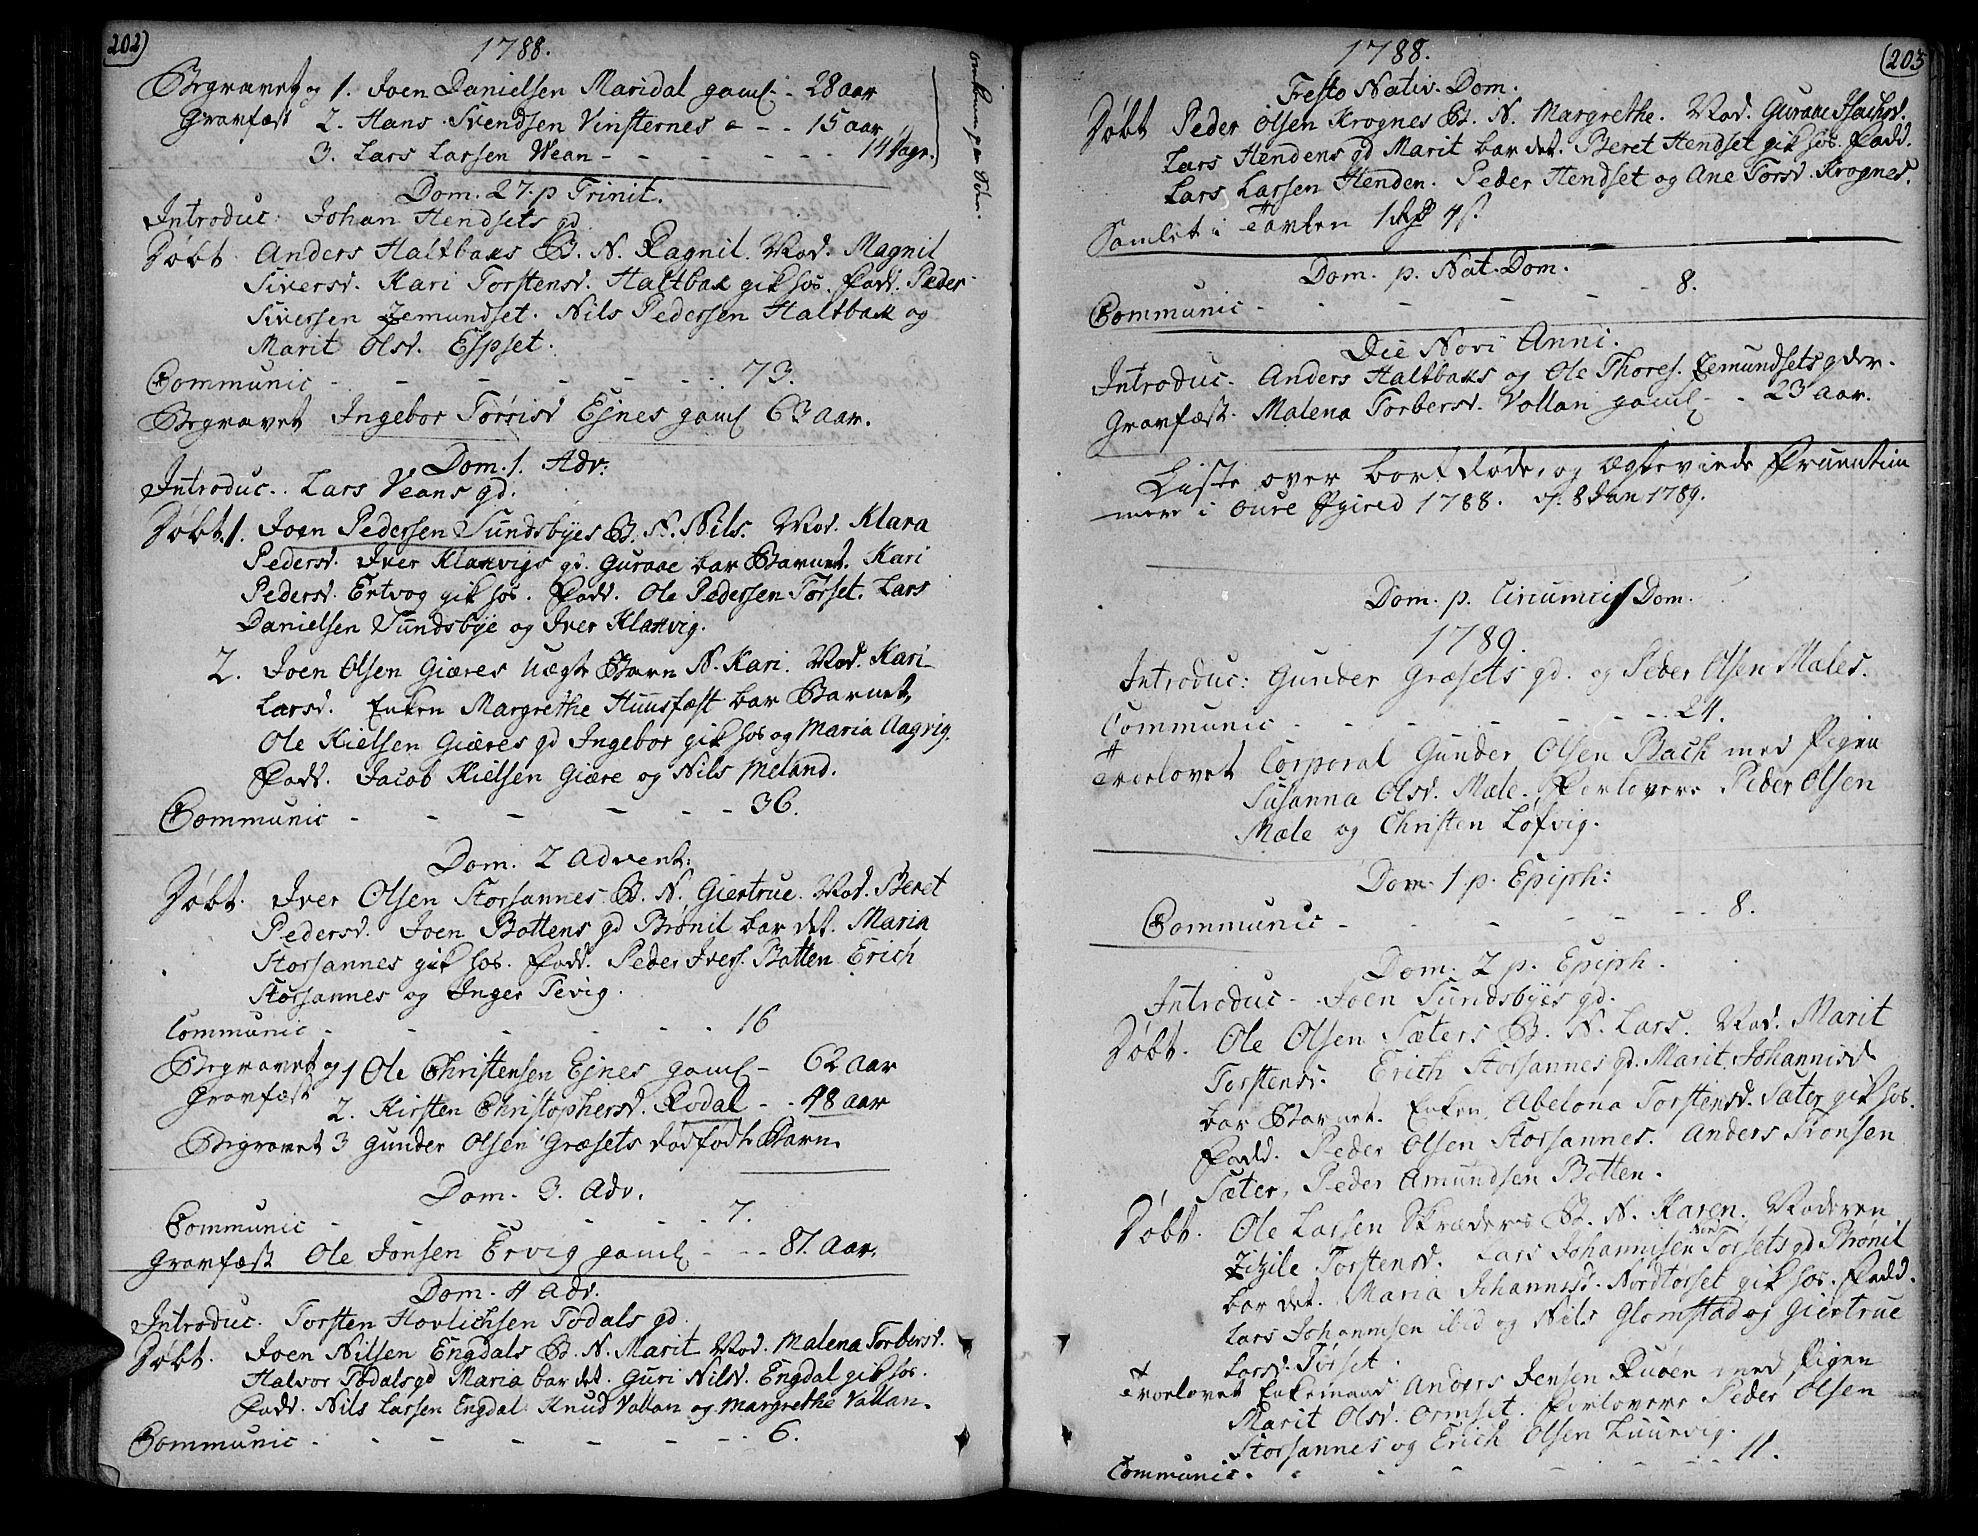 202)
1788.
Begravet og 1. Joen Danielsen Maridal gaml - 28 aar
Gravfæst 2. Hans Svendsen Vinsternes - - 15 aar
3. Lars Larsen Wean - - - - - - 14 dage.
Dom. 27. p Trinit.
Introduc: Johan Hendsets gd
Døbt. Anders Haltbaks B. N. Ragnil. Mod. Magnil
Siversd. Kari Torstensd. Haltbak gik hos. Fadd. Peder
Siversen Zemundset. Nils Pedersen Haltbak og
Marit Olsd. Espset.
Communic - - - - - - - 73.
Begravet Ingebor Torrisd Ejnes gaml 63 aar.
Dom. 1. Adv:
Introduc. Lars Veans gd.
Døbt. 1. Joen Pedersen Sundsbyes B. N. Nils. Mod. Klara
Pedersd. Iver Klakvigs gd. Guraae bar Barnet. Kari
Pedersd. Ertvog gik hos. Fadd. Ole Pedersen Torset. Lars
Danielsen Sundsbye og Iver Klakvig.
2. Joen Olsen Giæres Uægte Barn N. Kari. Mod. Kari
Larsd. Enken Margrethe Huusfæst bar Barnet,
Ole Kielsen Giæres gd Ingebor gik hos og Maria Aagvig.
Fadd. Jacob Kielsen Giære og Nils Meland.
Communic - - - - - - 36.
Dom. 2 Advent:
Døbt. Iver Olsen Storsannes B. N. Giertrue. Mod. Beret
Pedersd. Joen Bottens gd Brønil bar det. Maria
Storsannes gik hos. Fadd. Peder Ivers. Botten Erich
Storsannes og Inger Tevig.
Communic - - - - - - 16
Begravet og 1 Ole Christensen Ejnes gaml - 62 aar
Gravfæst 2. Kirsten Christophersd. Rodal - - 48 aar
Begravet 3 Gunder Olsen Græsets dødfødt Barn.
Dom. 3. Adv.
Communic - - - - - - 7.
Gravfæst Ole Jonsen Ervig gaml - - - 87. Aar.
Dom. 4 Adv.
Introduc. Torsten Hovlichsen Todals gd.
Døbt. Joen Nilsen Engdals B. N. Marit Mod. Malena Torbersd.
Halvor Todals gd Maria bar det. Guri Nilsd. Engdal gik hos.
Fadd. Nils Larsen Engdal Knud Vollan og Margrethe Vollan.
Communic - - - - - - - 6.
(203
1788.
Festo Nativ. Dom.
Døbt Peder Olsen Krognes B. N. Margrethe. Mod. Guraae Isachsd.
Lars Hendens gd Marit bar det. Beret Hendset gik hos. Fadd.
Lars Larsen Henden. Peder Hendset og Ane Torsd. Krognes.
Samlet i Tavlen
Dom. p. Nat. Dom.
Communic - - - - - - 8.
Die Novi Anni.
Introduc. Anders Haltbaks og Ole Thores. Zemundsets gder.
Gravfæst. Malena Torbersd. Vollan gaml - - 23 aar.
Liste over
1788. 8 Jan 1789.
Dom. p. Circumcis Dom.
1789.
Introduc: Gunder Græsets gd. og Peder Olsen Mæles.
Communic - - - - - - 24.
Trovlovet Corporal Gunder Olsen Bach med Pigen
Susanna Olsd. Mæle. Forlovere Peder Olsen
Mæle og Christen Løfvig.
Dom. 1 p. Epiph:
Communic - - - - - - 8.
Dom. 2 p. Epiph.
Introduc - Joen Sundsbyes gd.
Døbt. Ole Olsen Sæters B. N. Lars. Mod. Marit
Torstensd. Erich Storsannes gd. Marit Johannisd
bar Barnet. Enken Abelona Torstensd. Sæter gik hos.
Fadd. Peder Olsen Storsannes. Anders Tronsen
Sæter, Peder Amundsen Botten.
Døbt. Ole Larsen Skræders B. N. Karen. Moderen
Zizile Torstensd. Lars Johannisen Nord Torsets gd Brønil
bar det. Maria Johannisd. Nordtorset gik hos. Fadd.
Lars Johannisen ibid og Nils Glomstad og Giertrue
Larsd. Torset.
Trovlovet Enkemand Anders Jensen Ruøen med Pigen
Marit Olsd. Ormset. Forlovere Peder Olsen
Storsannes og Erich Olsen Luurvig.
Communic. - - - - - - 11.